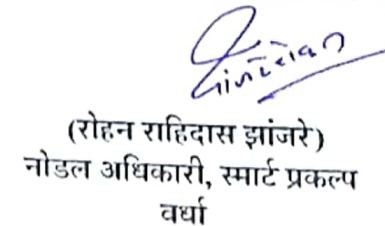 (रोहन राहिदास झांजरे)
नोडल अधिकारी, स्मार्ट प्रकल्प
वर्धा